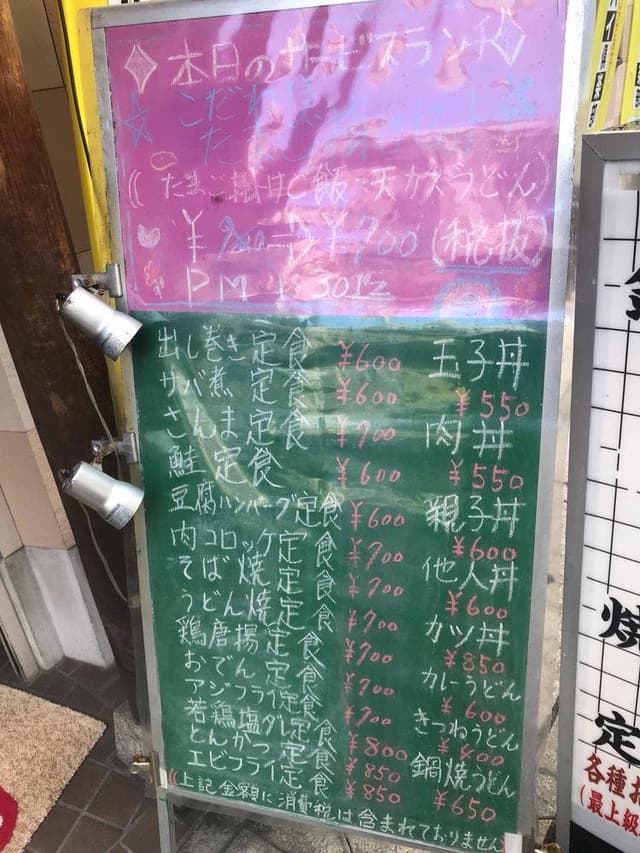 本日のサービスランチ
こだわり
たまご
((たまご掛けご飯・天カスうどん)
¥900⇒¥700(税抜)
出し巻き定食 ¥600
サバ煮定食 ¥600
さんま定食 ¥700
鮭定食 ¥600
豆腐ハンバーグ定食 ¥600
肉コロッケ定食 ¥700
そば焼定食 ¥700
うどん焼定食 ¥700
鶏唐揚定食 ¥700
おでん定食 ¥700
アジフライ定食 ¥700
若鶏塩ダレ定食 ¥800
とんかつ定食 ¥850
エビフライ定食 ¥850
玉子丼
¥550
肉丼
¥550
親子丼
¥600
他人丼
¥600
カツ丼
¥850
カレーうどん
¥600
きつねうどん
¥400
鍋焼うどん
¥650
((上記金額に消費税は含まれておりません)
焼
定
各種
(最上級